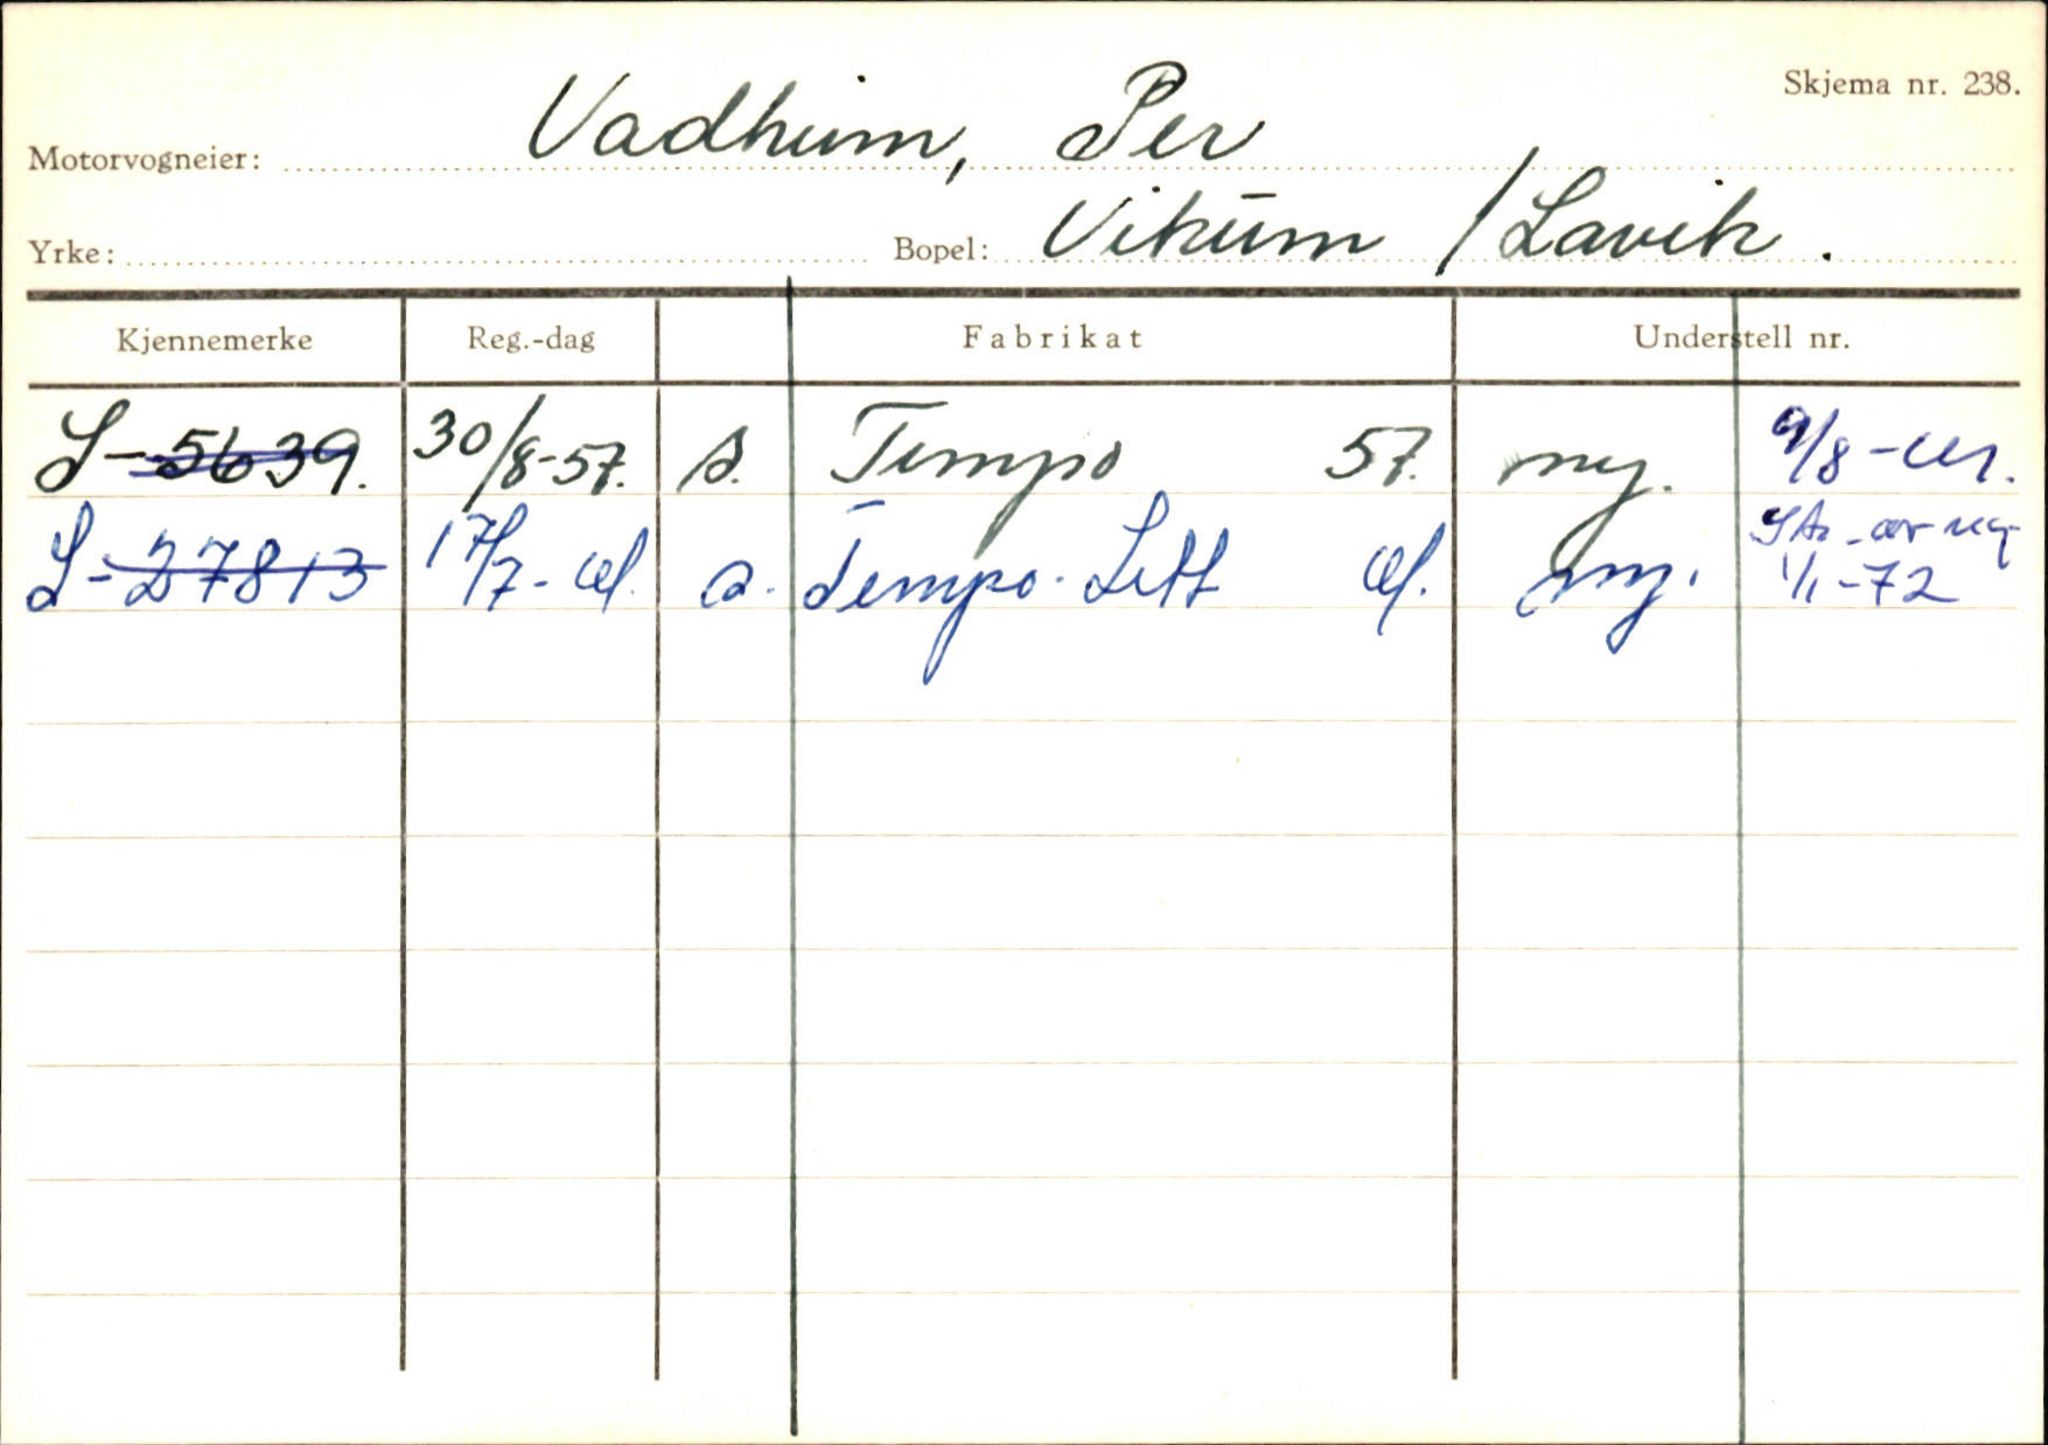 Skjema nr. 238.
Motorvogneier: Vadheim, Per
Yrke: Bopel: Vikum / Lavik.
Kjennemerke Reg.-dag Fabrikat Understell nr.
S-5639. 30/8-57. s. Tempo 57. ny. 9/8-
S-27813 17/7-61. a. Tempo Lett 61. ny. Str. av reg
1/1-72